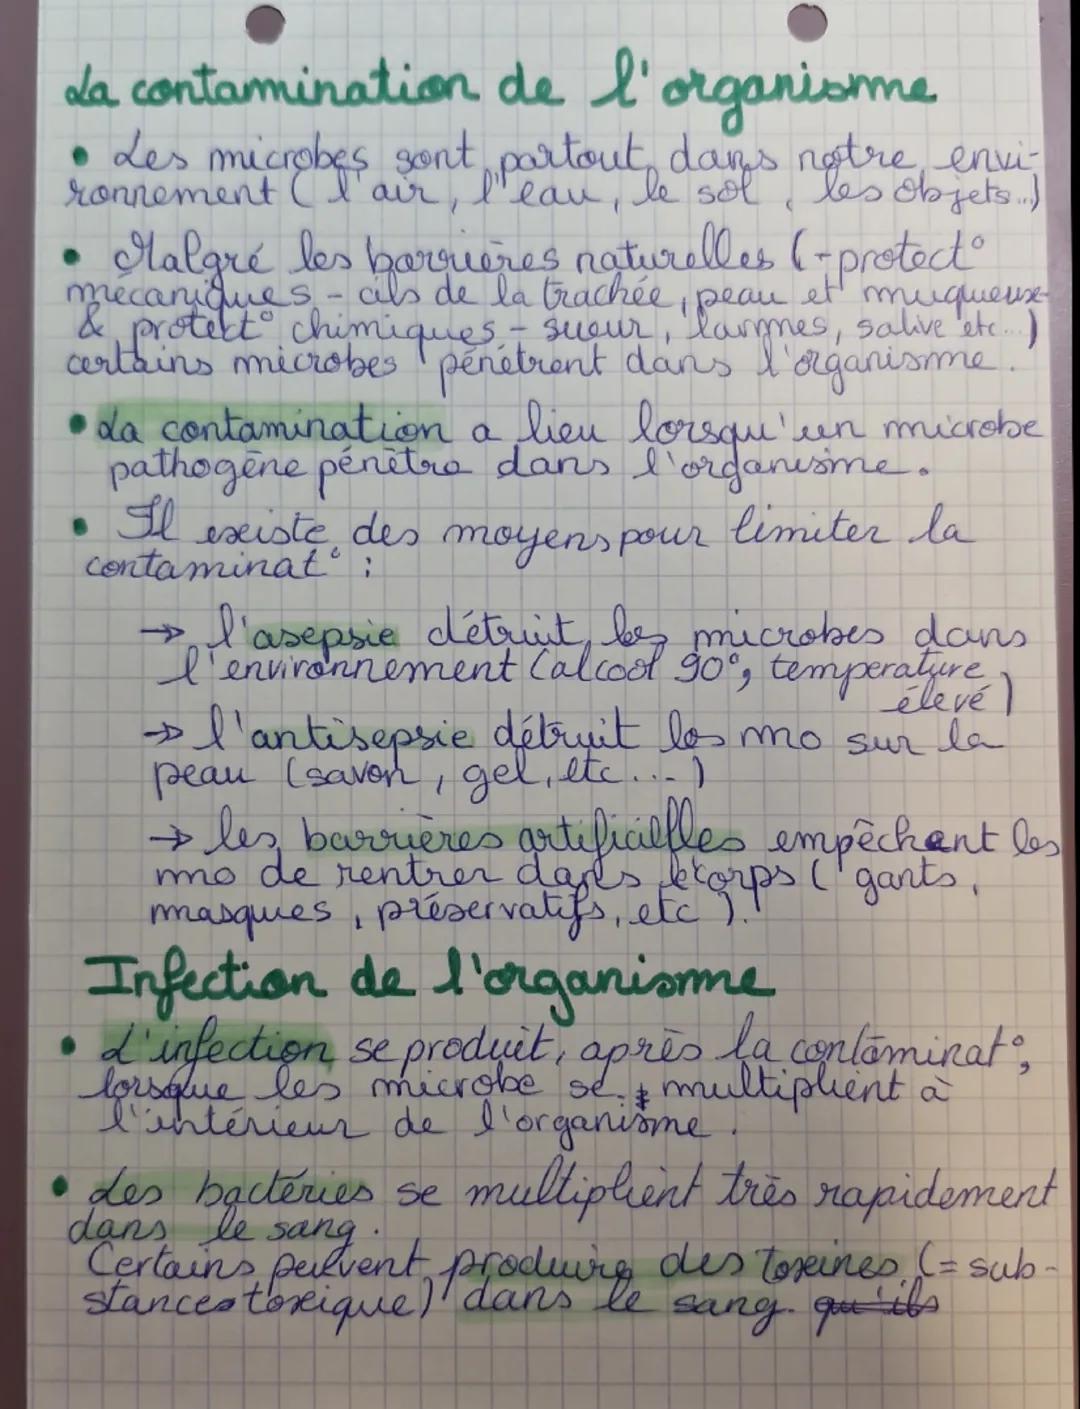 La contamination de l'organisme
• Les microbes sont partout dans notre envi-
ronnement (l'air, l'eau, le sol, les objets...)
• Malgré les barrières naturelles (-protect°
mécaniques - cils de la trachée, peau et muqueuse
& protect° chimiques - sueur, larmes, salive etc...)
certains microbes pénètrent dans l'organisme.
• La contamination a lieu lorsqu'un microbe
pathogène pénètre dans l'organisme.
• Il existe des moyens pour limiter la
contaminat° :
→ l'asepsie détruit les microbes dans
l'environnement (alcool 90°, temperature
élevé)
→ l'antisepsie détruit les mo sur la
peau (savon, gel, etc...)
→ les barrières artificielles empêchent les
mo de rentrer dans le corps (gants,
masques, préservatifs, etc).
Infection de l'organisme
• L'infection se produit, après la contaminat°,
lorsque les microbe se multiplient à
l'intérieur de l'organisme.
• Les bactéries se multiplient très rapidement
dans le sang.
Certains peuvent produire des toxines (= sub-
stances toxique) dans le sang. qu'ils